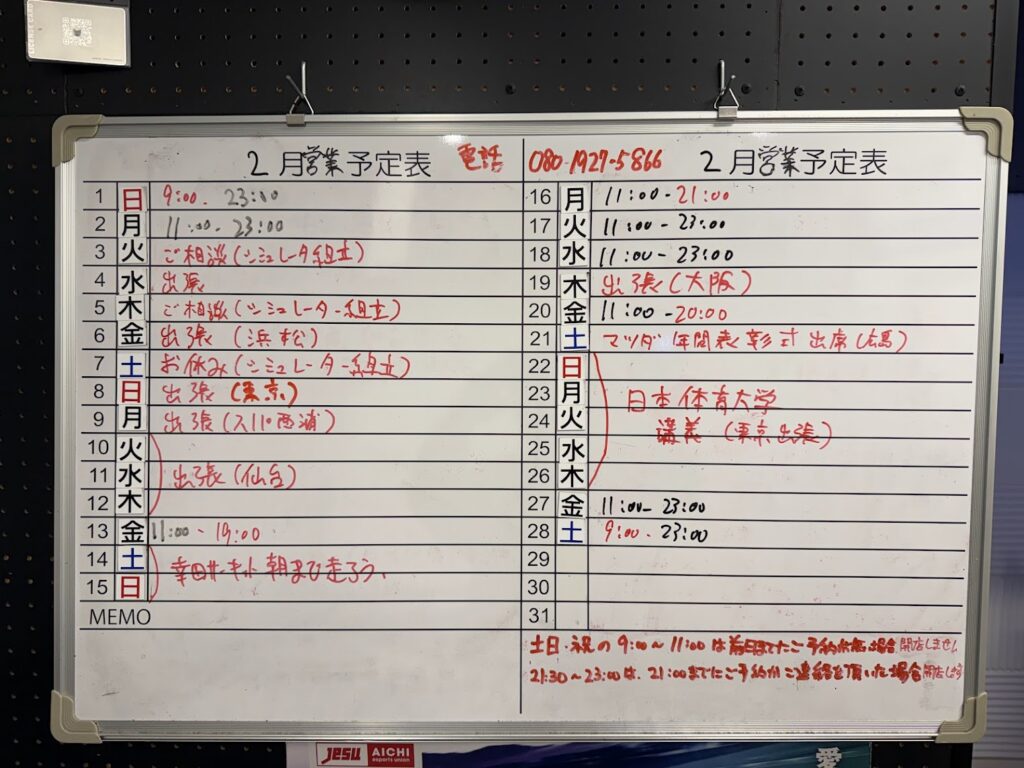 2月営業予定表 電話 080-1927-5866 2月営業予定表
1 日 9:00. 23:00
2 月 11:00-23:00
3 火 ご相談(シミュレータ組立)
4 水 出張
5 木 ご相談(シミュレーター組立)
6 金 出張 (浜松)
7 土 お休み(シミュレーター組立)
8 日 出張 (東京)
9 月 出張(スパ西浦)
10 火
11 水 出張(仙台)
12 木
13 金 11:00-19:00
14 土 幸田サーキット 朝まで走ろう、
15 日
MEMO
16 月 11:00-21:00
17 火 11:00-23:00
18 水 11:00-23:00
19 木 出張(大阪)
20 金 11:00-20:00
21 土 マツダ 年間表彰式 出席(広島)
22 日
23 月 日本体育大学
24 火 講義 (東京出張)
25 水
26 木
27 金 11:00-23:00
28 土 9:00-23:00
29
30
31
土日・祝の9:00~11:00は前日までにご予約無い場合開店しません
21:30~23:00は、21:00までにご予約かご連絡を頂いた場合開店します
JeSU AICHI
esports union
愛